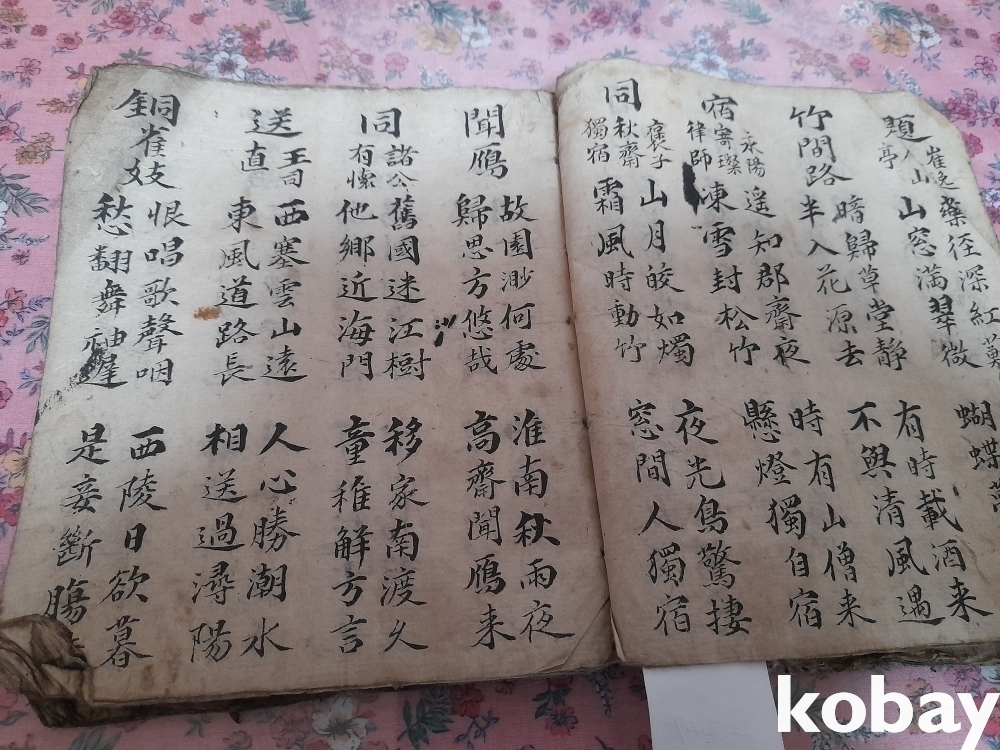 題崔逸人山亭
藥徑深紅
山窓滿翠微
蝴蝶
竹間路
暗歸草堂靜
半入花源去
有時載酒来
不與清風遇
宿永陽寄璨律師
遥知郡齋夜
凍雪封松竹
時有山僧来
懸燈獨自宿
同褒子秋齋獨宿
山月皎如燭
霜風時動竹
夜光鳥驚捿
窓間人獨宿
聞鴈
故園渺何處
歸思方悠哉
淮南秋雨夜
高齋聞鴈来
同諸公有懷
舊國迷江樹
他鄉近海門
移家南渡久
童稚解方言
送王司直
西塞雲山遠
東風道路長
人心勝潮水
相送過潯陽
銅雀妓
恨唱歌聲咽
愁翻舞袖遲
西陵日欲暮
是妾斷膓
kobay